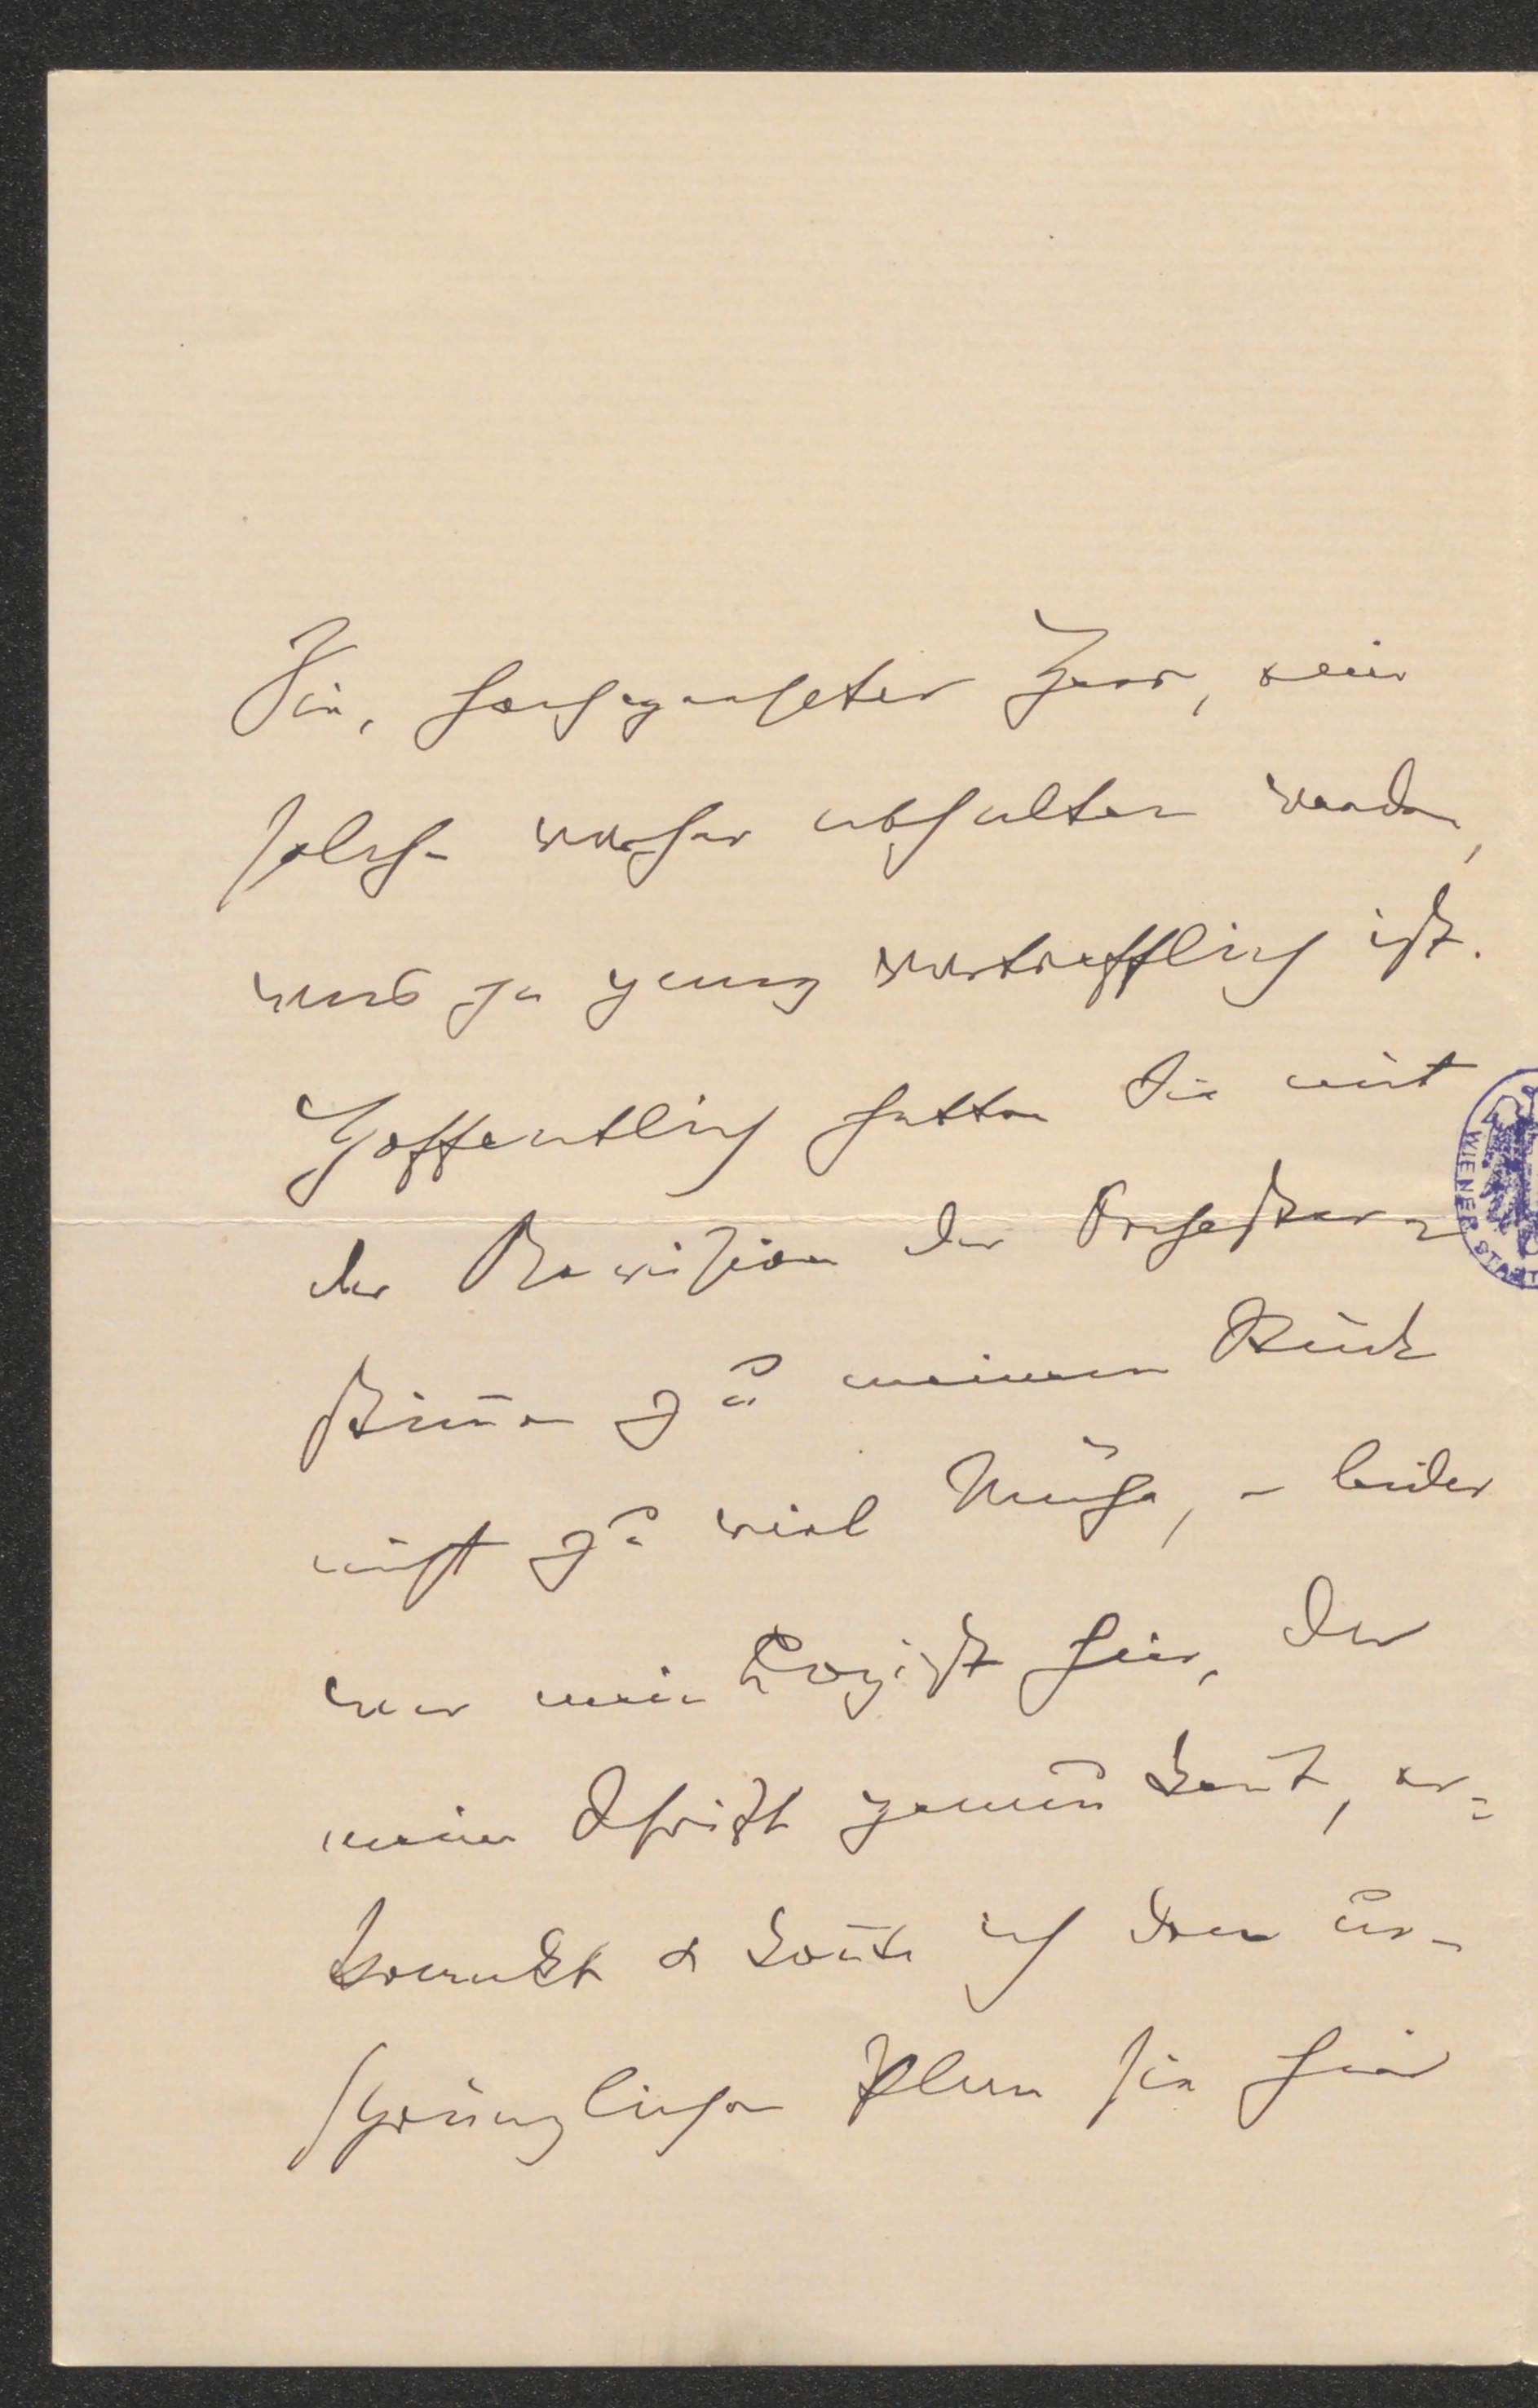 Sie, hochgeehrter Herr, eine
solche vorher abhalten werden,
was ja ganz vortrefflich ist.
Hoffentlich hatten Sie mit
der Revision der Orchester-
stim̄en zu meinem Stück
nicht zu viel Mühe, – leider
war mein Copist hier, der
meine Schrift genau ken̄t, er=
krankt & kon̄te ich den ur-
sprünglichen Plan sie hier
WIENER STADT